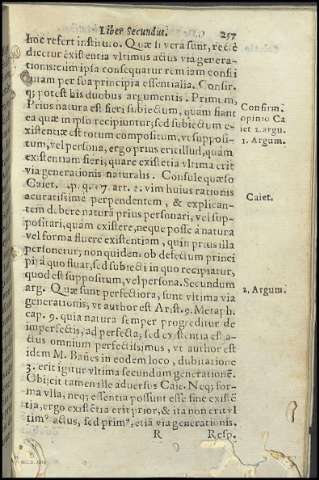 Liber Secundus. 257
hoc refert instituto. Quæ si vera sunt, rectè
dicetur existentia vltimus actus via genera-
tionis: cum ipsa consequatur rem iam consti
tutam per sua principia essentialia. Confir.
q; potest his duobus argumentis. Primum,
Prius natura est fieri subiectum, quam fiant
ea quæ in ipso recipiuntur; sed subiectum e-
xistentiæ est totum compositum, vel supposi-
tum, vel persona, ergo prius erit illud, quàm
existentiam fieri; quare existētia vltima erit
via generationis naturalis. Consule quæso
Caiet. p. q. 17. art. 2. vim huius rationis
acuratissime perpendentem, & explican-
tem debere natura prius personari, vel sup-
positari, quàm existere, neque posse à natura
vel forma fluere existentiam, quin prius illa
personetur; non quidem ob defectum princi
pij à quo fluat, sed subiecti in quo recipiatur,
quod est suppositum, vel persona. Secundum
arg. Quæ sunt perfectiora, sunt vltima via
generationis, vt author est Arist. 9. Metaph.
cap. 9. quia natura semper progreditur de
imperfectis, ad perfecta, sed existentia est a-
ctus omnium perfectissimus, vt author est
idem M. Bañes in eodem loco, dubitatione
3. erit igitur vltima secundum generationē.
Obijcit tamen ille aduersus Caie. Neq; for-
ma vlla, neq; essentia possunt esse sine existē
tia, ergo existētia erit prior, & ita non erit vl
tim⁹ actus, sed prim⁹, etiā via generationis.
R Resp.
Confirm.
opinio Ca
iet 2. argu.
1. Argum.
Caiet.
2. Argum.